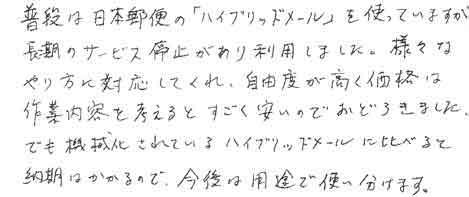 普段は日本郵便の「ハイブリッドメール」を使っていますが
長期のサービス停止があり利用しました。様々な
やり方に対応してくれ、自由度が高く価格は
作業内容を考えるとすごく安いのでおどろきました。
でも機械化されているハイブリッドメールに比べると
納期はかかるので、今後は用途で使い分けます。